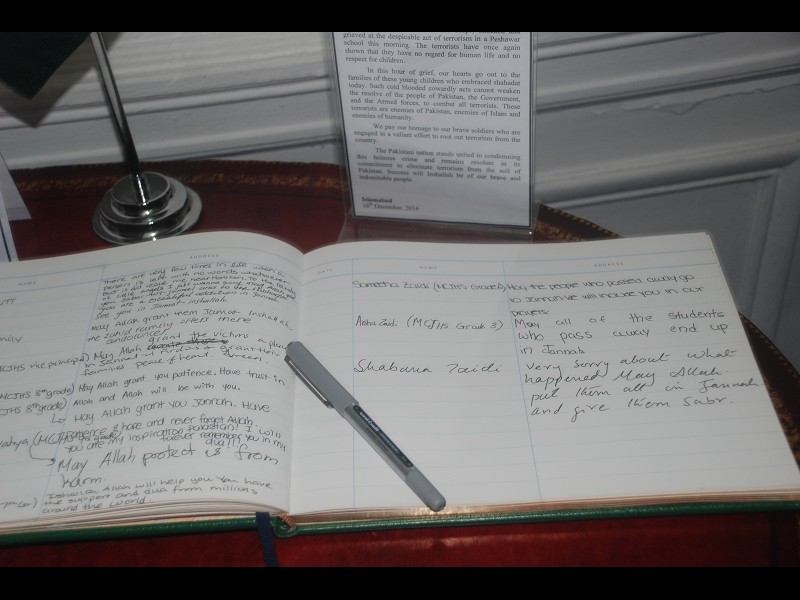 grieved at the despicable act of terrorism in a Peshawar
school this morning. The terrorists have once again
shown that they have no regard for human life and no
respect for children.
In this hour of grief, our hearts go out to the
families of these young children who embraced shahadat
today. Such cold blooded cowardly acts cannot weaken
the resolve of the people of Pakistan, the Government,
and the Armed forces, to combat all terrorists. These
terrorists are enemies of Pakistan, enemies of Islam and
enemies of humanity.
We pay our homage to our brave soldiers who are
engaged in a valiant effort to root out terrorism from the
country.
The Pakistani nation stands united in condemning
this heinous crime and remains resolute in its
commitment to eliminate terrorism from the soil of
Pakistan. Success will Inshallah be of our brave and
indomitable people.
Islamabad
16th December, 2014
NAME
ADDRESS
There are very few times in life when a
person is left with no words whatsoever
see you in Jannah inshallah.
May Allah grant them Jannat Inshallah,
the Zahid family offers there
condolences
vice principal) May Allah grant the victims a place
in Jannat-ul-Firdous & grant their
families peace of heart. Ameen
(MCJHS 8th grade) May Allah grant you patience. Have trust in
8th grade) Allah and Allah will be with you.
May Allah grant you Jannah. Have
patience & hope and never forget Allah.
you are my inspiration Pakistan! I will
forever remember you in my
dua!!!
May Allah protect us from
harm.
Inshallah Allah will help you. You have
the support and dua from millions
around the world.
DATE
NAME
ADDRESS
Sameeha Zaidi (MCJHS Grade) May the people who passed away go
to Jannah we will include you in our
prayers
Zaidi (MCJHS Grade 3)
May all of the students
who pass away end up
in Jannah
Shabana Zaidi
Very sorry about what
happened May Allah
put them all in Jannah
and give them Sabr.